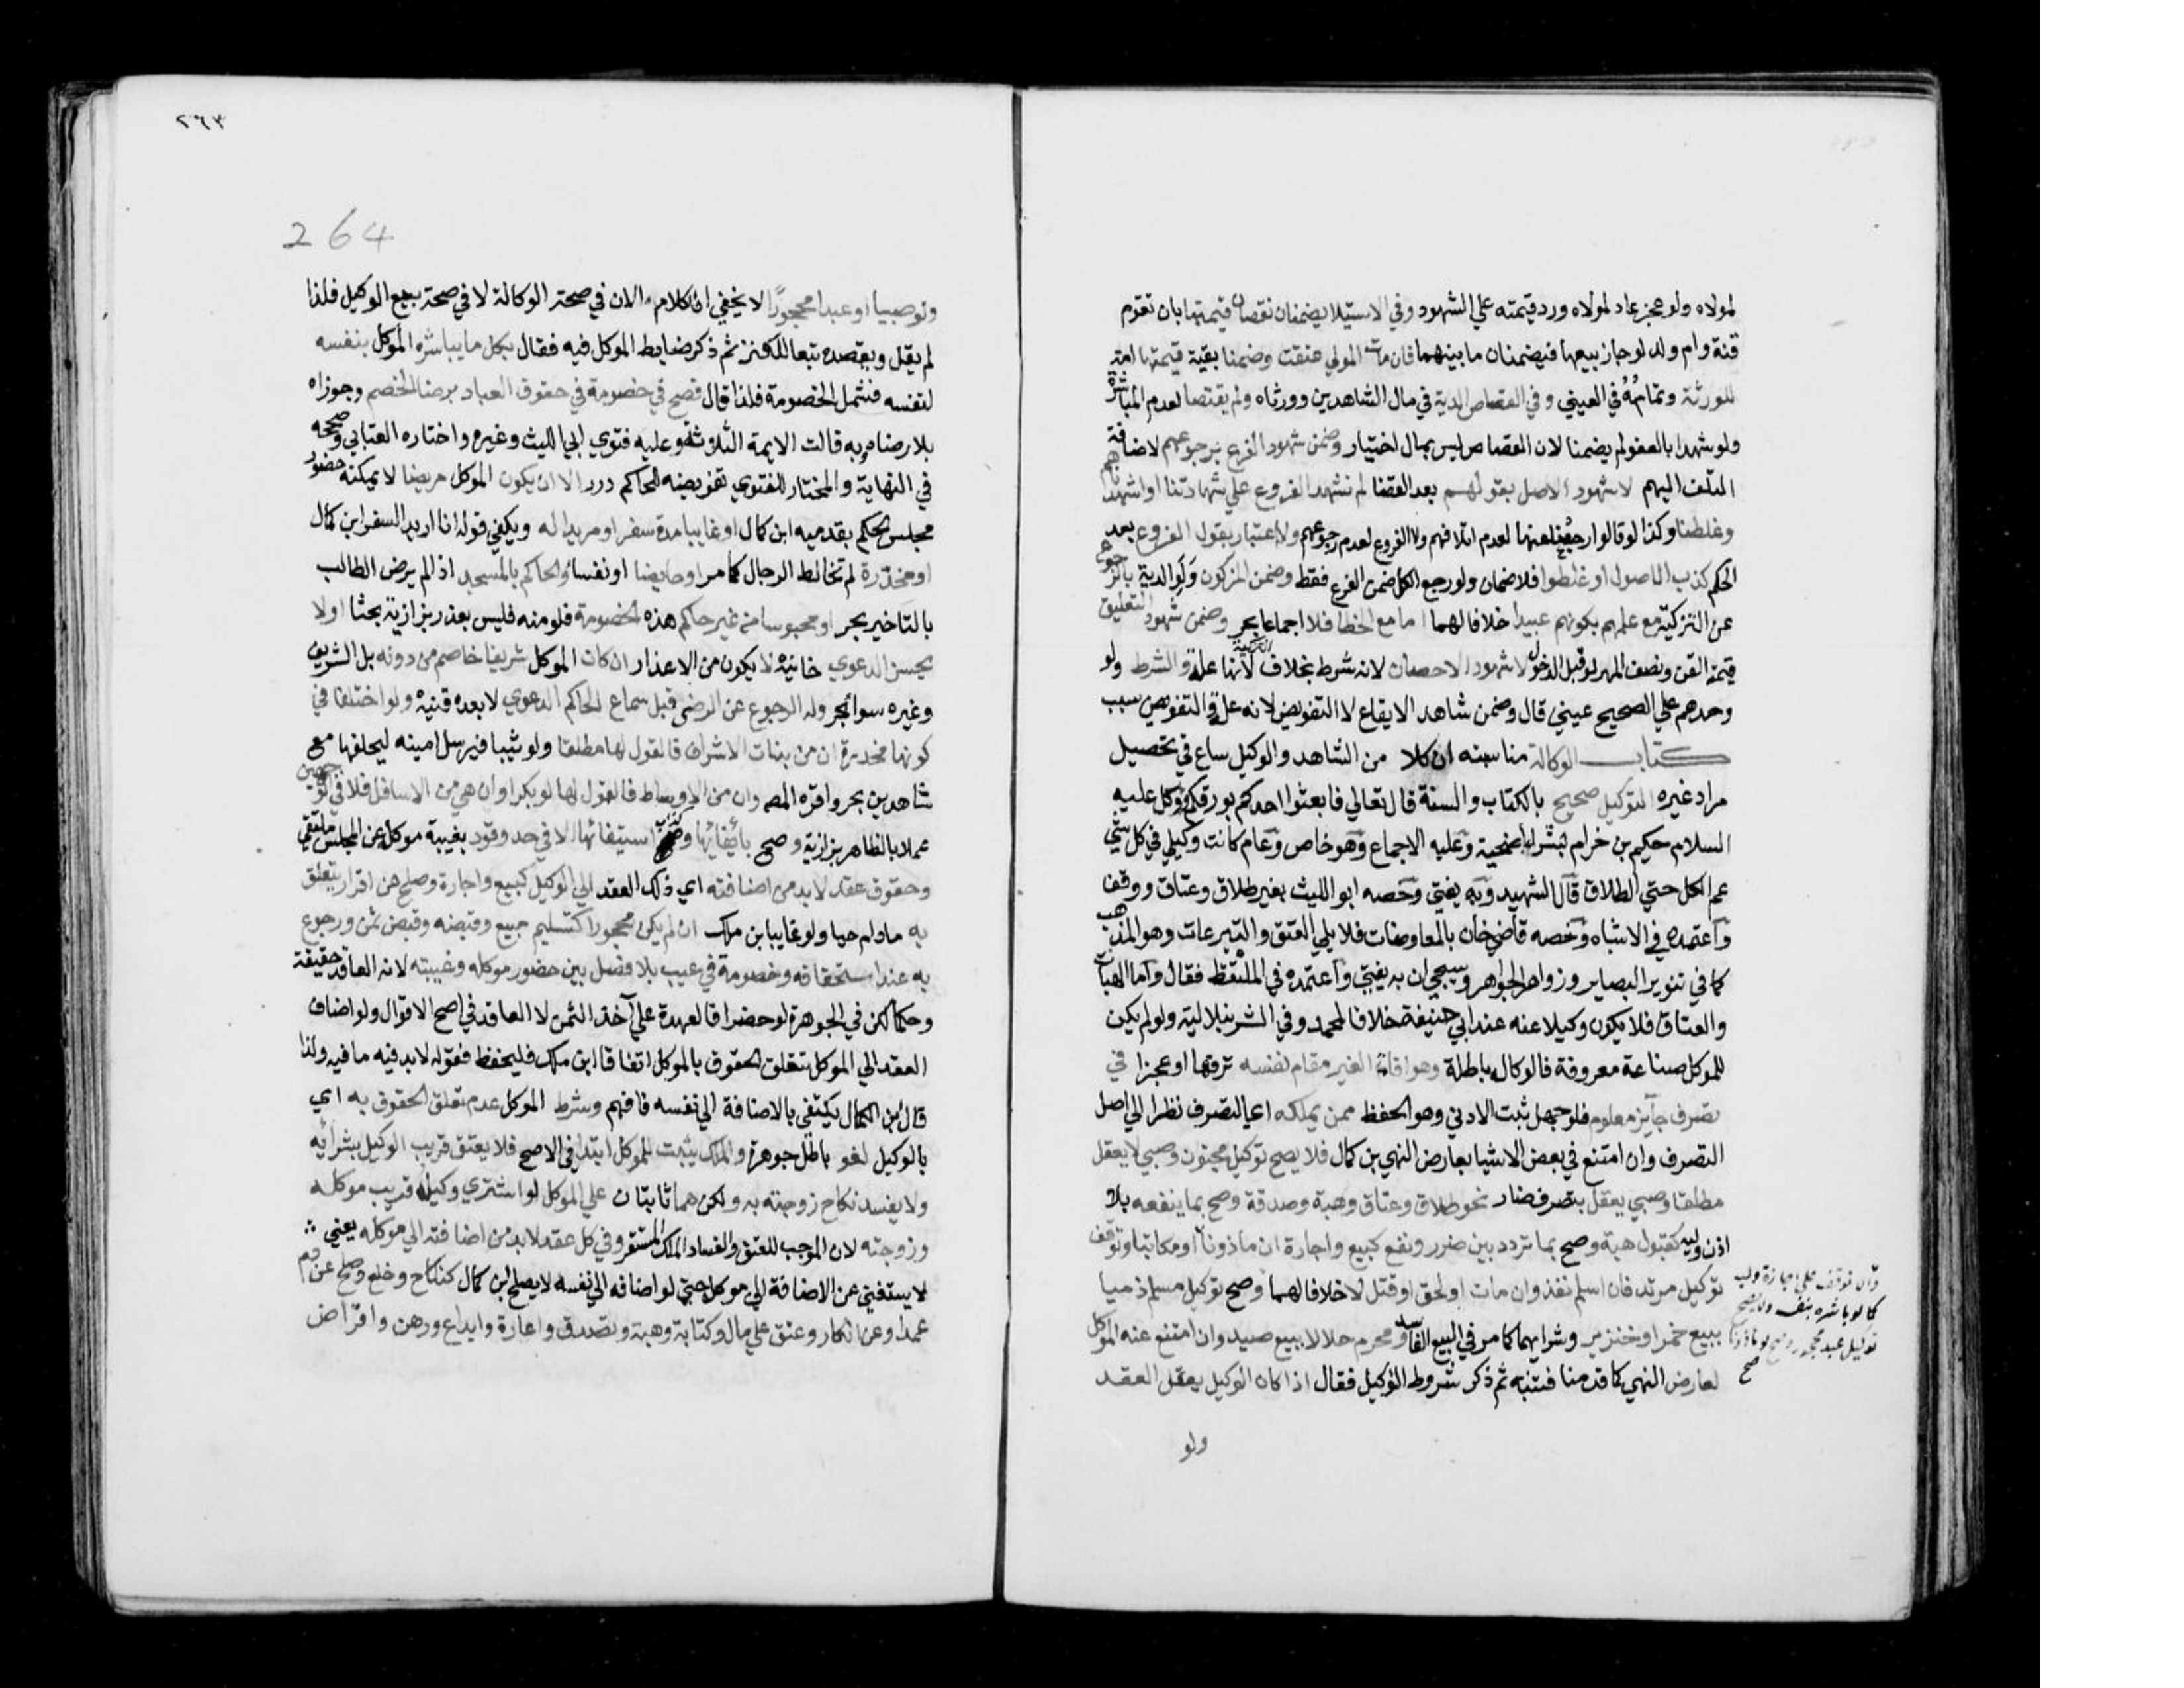 لمولاه ولو عجز عاد لمولاه ورد قيمته علي الشهود وفي الاستيلا يضمنان نقصان قيمتها بان تقوم
قنة وام ولد لو جاز بيعها فيضمنان ما بينهما فان مات المولي عتقت وضمنا بقية قيمتها امة
للورثة وتمامه في العيني وفي القصاص الدية في مال الشاهدين وورثاه ولم يقتصا لعدم المباشرة
ولو شهدا بالعفو لم يضمنا لان القصاص ليس بمال اختيار وضمن شهود الفرع برجوعهم لاضافة
التلف اليهم لا شهود الاصل بقولهم بعد القضا لم نشهد الفروع علي شهادتنا او اشهدناهم
وغلطنا وكذا لو قالوا رجعنا عنها لعدم اتلافهم ولا الفروع لعدم رجوعهم ولا اعتبار بقول الفروع بعد
الحكم كذب الاصول او غلطوا فلا ضمان ولو رجع الكل ضمن الفرع فقط وضمن المزكون ولو الدية بالرجوع
عن التزكية مع علمهم بكونهم عبيدا خلافا لهما اما مع الخطا فلا اجماعا بحر وضمن شهود التعليق
قيمة القن ونصف المهر لو قبل الدخول لا شهود الاحصان لانه شرط بخلاف التزكية لانها علة والشرط ولو
وحدهم علي الصحيح عيني قال وضمن شاهد الايقاع لا التفويض لانه علة والتفويض سبب
كتاب الوكالة مناسبته ان كلا من الشاهد والوكيل ساع في تحصيل
مراد غيره التوكيل صحيح بالكتاب والسنة قال تعالي فابعثوا احدكم بورقكم ووكل عليه
السلام حكيم بن خرام بشراء اضحية وعليه الاجماع وهو خاص وعام كانت وكيلي في كل شي
عم الكل حتي الطلاق قال الشهيد وبه يفتي وخصه ابو الليث بغير طلاق وعتاق ووقف
واعتمده في الاشباه وخصه قاضي خان بالمعاوضات فلا يلي العتق والتبرعات وهو المذهب
كما في تنوير البصاير وزواهر الجواهر وسيجي ان به يفتي واعتمده في الملتقط فقال واما الهبات
والعتاق فلا يكون وكيلا عنه عند ابي حنيفة خلافا لمحمد وفي الشرنبلالية ولو لم يكن
للموكل صناعة معروفة فالوكالة باطلة وهو اقامة الغير مقام نفسه ترفها او عجزا في
تصرف جايز معلوم فلو جهل ثبت الادني وهو الحفظ ممن يملكه اي التصرف نظرا الي اصل
التصرف وان امتنع في بعض الاشيا بعارض النهي بن كمال فلا يصح توكيل مجنون وصبي لا يعقل
مطلقا وصبي يعقل بتصرف ضار نحو طلاق وعتاق وهبة وصدقة وصح بما ينفعه بلا
اذن وليه كقبول هبة وصح بما تردد بين ضرر ونفع كبيع واجارة ان ماذونا او مكاتبا وتوقف
توكيل مرتد فان اسلم نفذ وان مات او لحق او قتل لا خلافا لهما وصح توكيل مسلم ذميا
ببيع خمر او خنزير وشرايهما كما مر في البيع الفاسد ومحرم حلالا ببيع صيد وان امتنع عنه الموكل
لعارض النهي كما قدمنا فتنبه ثم ذكر شروط الوكيل فقال اذا كان الوكيل يعقل العقد
والا توقف علي اجازة وليه
كما لو باشره بنفسه ولا يصح
توكيل عبد محجور وصح لو ماذونا
صح
ولو
٢٦٣
264
ولو صبيا او عبدا محجورا لا يخفي ان الكلام الان في صحة الوكالة لا في صحة بيع الوكيل فلذا
لم يقل ويقصده تبعا للكنز ثم ذكر ضابط الموكل فيه فقال بكل ما يباشره الموكل بنفسه
لنفسه فشمل الخصومة فلذا قال فصح في خصومة في حقوق العباد برضا الخصم وجوزاه
بلا رضاه وبه قالت الايمة الثلاثة وعليه فتوي ابي الليث وغيره واختاره العتابي وصححه
في النهاية والمختار للفتوي تفويضه للحاكم درر الا ان يكون الموكل مريضا لا يمكنه حضور
مجلس الحكم بقدميه ابن كمال او غايبا مدة سفر او مريدا له ويكفي قوله انا اريد السفر ابن كمال
او مخدرة لم تخالط الرجال كما مر او حايضا او نفسا والحاكم بالمسجد اذا لم يرض الطالب
بالتاخير بحر او محبوسا من غير حاكم هذه الخصومة فلو منه فليس بعذر بزازية بحثا او لا
يحسن الدعوي خانية لا يكون من الاعذار ان كان الموكل شريفا خاصم من دونه بل الشريف
وغيره سوا بحر وله الرجوع عن الرضي قبل سماع الحاكم الدعوي لا بعده قنية ولو اختلفا في
كونها مخدرة ان من بنات الاشراف فالقول لها مطلقا ولو ثيبا فيرسل امينه ليحلفها مع
شاهدين بحر واقره المصـ وان من الاوساط فالقول لها لو بكرا وان هي من الاسافل فلا في الوجهين
عملا بالظاهر بزازية وصح بايفائها وكذا باستيفائها الا في حد وقود بغيبة موكل عن المجلس ملتقي
وحقوق عقد لابد من اضافته اي ذلك العقد الي الوكيل كبيع واجارة وصلح عن اقرار يتعلق
به مادام حيا ولو غايبا بن ملك ان لم يكن محجورا كتسليم مبيع وقبضه وقبض ثمن ورجوع
به عند استحقاقه وخصومة في عيب بلا فصل بين حضور موكله وغيبته لانه العاقد حقيقة
وحكما لكن في الجوهرة لو حضرا فالعهدة علي آخذ الثمن لا العاقد في اصح الاقوال ولو اضاف
العقد الي الموكل تتعلق الحقوق بالموكل اتفاقا ابن ملك فليحفظ فقوله لابد فيه ما فيه ولذا
قال ابن الكمال يكتفي بالاضافة الي نفسه فافهم وشرط الموكل عدم تعلق الحقوق به اي
بالوكيل لغو باطل جوهرة والملك يثبت للموكل ابتدا في الاصح فلا يعتق قريب الوكيل بشرائه
ولا يفسد نكاح زوجته به ولكن هما ثابتان علي الموكل لو اشتري وكيله قريب موكله
وزوجته لان الموجب للعتق والفساد الملك المستقر وفي كل عقد لابد من اضافته الي موكله يعني
لا يستغني عن الاضافة الي موكله حتي لو اضافه الي نفسه لا يصح ابن كمال كنكاح وخلع وصلح عن دم
عمد او عن انكار وعتق علي مال وكتابة وهبة وتصدق واعارة وايداع ورهن واقراض